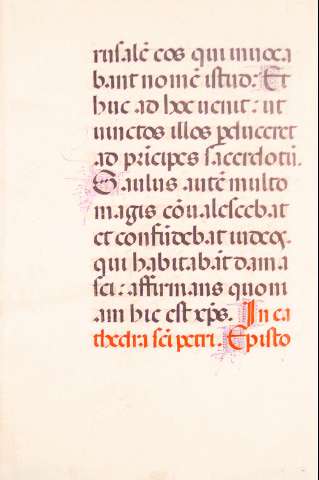 rusalē eos qui inuoca
bant nomē istud: Et
huc ad hoc uenit: ut
uinctos illos ꝑduceret
ad prīcipes sacerdotū.
Saulus autē multo
magis cōualescebat
et confūdebat iudeos
qui habitabāt dama
sci: affirmans quoni
am hic est xp̄s. In ca
thedra sc̄i petri. Episto